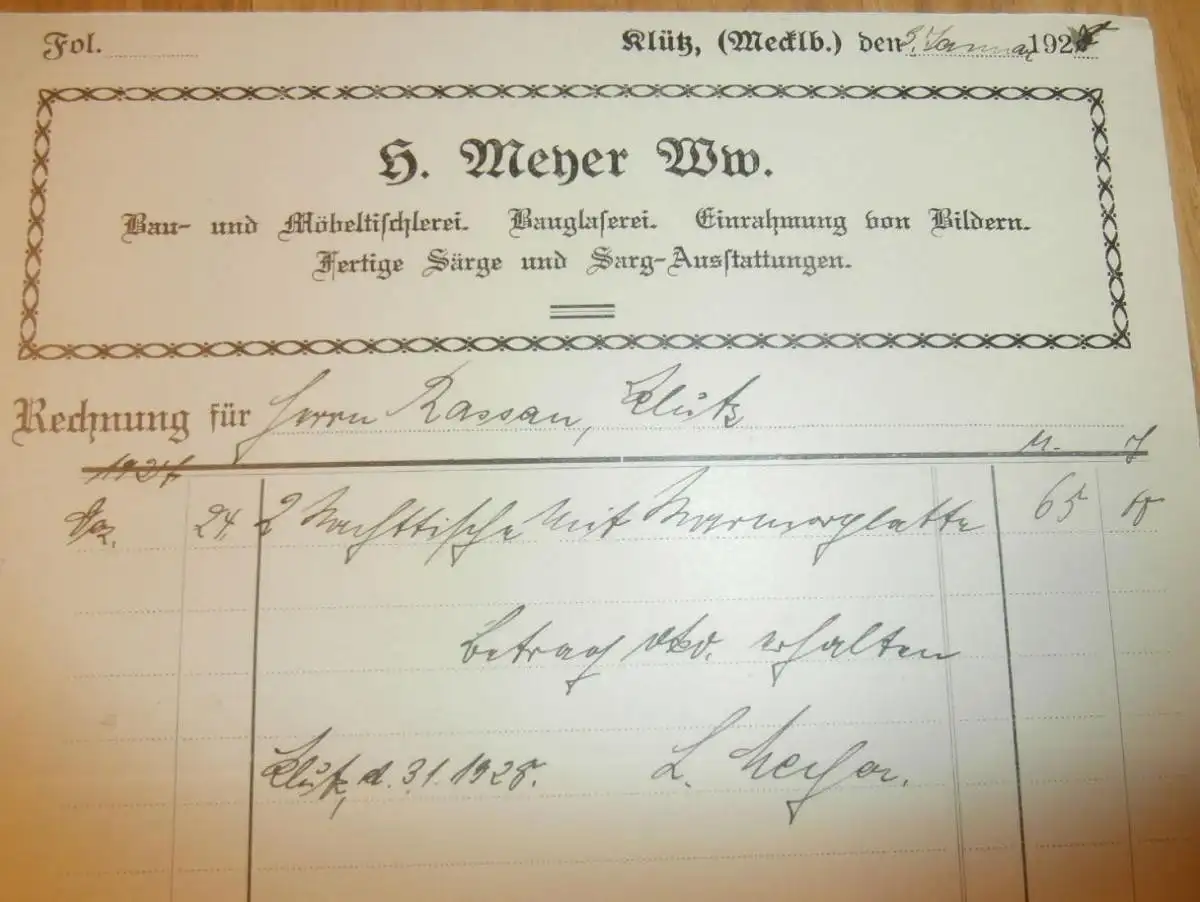 Fol.
Klütz, (Mecklb.) den 3. Januar 1928
H. Meyer Ww.
Bau- und Möbeltischlerei. Bauglaserei. Einrahmung von Bildern.
Fertige Särge und Sarg-Ausstattungen.
Rechnung für Herrn Rassau, Klütz
1927 M.
Dez. 24. 2 Nachttische mit Marmorplatte 65
Betrag erhalten
Klütz, d. 3.1.1928. L. Meyer.